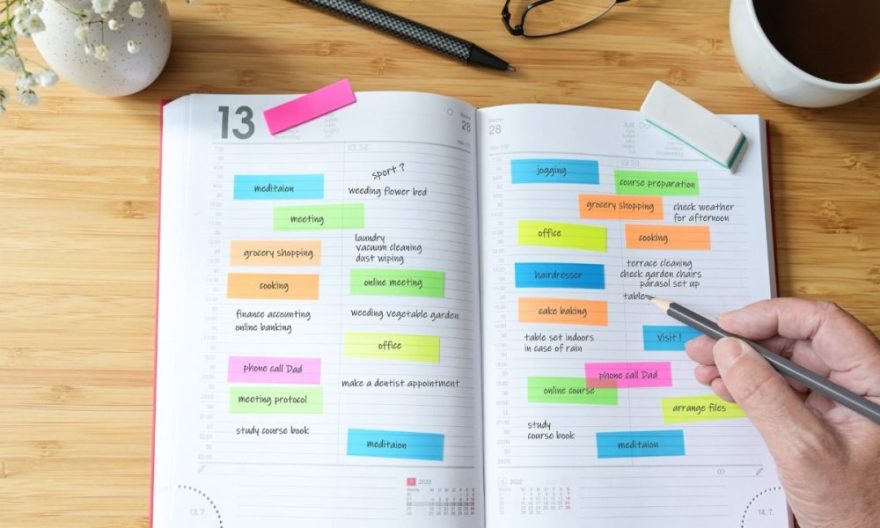 13
28
sport ?
meditaion
weeding flower bed
meeting
laundry
vacuum cleaning
dust wiping
grocery shopping
cooking
online meeting
finance accounting
online banking
weeding vegetable garden
office
phone call Dad
make a dentist appointment
meeting protocol
study course book
meditaion
2022
13. 7.
28
jogging
course preparation
grocery shopping
check weather
for afternoon
office
cooking
terrace cleaning
check garden chairs
parasol set up
hairdresser
table
cake baking
table set indoors
in case of rain
Visit !
phone call Dad
online course
arrange files
study
course book
meditaion
2022
14. 7.